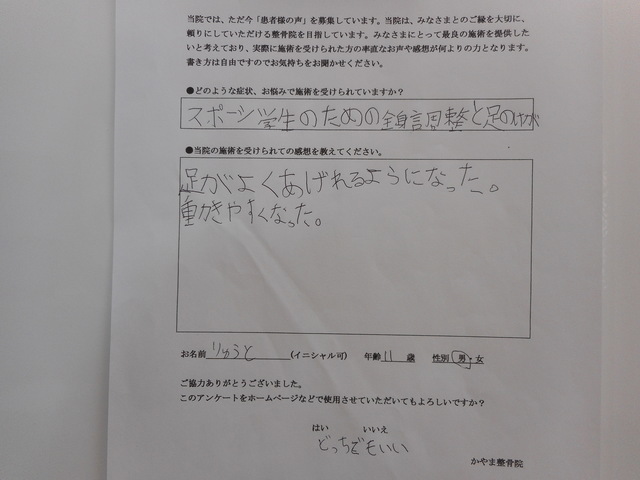 当院では、ただ今「患者様の声」を募集しています。当院は、みなさまとのご縁を大切に、
頼りにしていただける整骨院を目指しています。みなさまにとって最良の施術を提供した
いと考えており、実際に施術を受けられた方の率直なお声や感想が何よりの力となります。
書き方は自由ですのでお気持ちをお聞かせください。
●どのような症状、お悩みで施術を受けられていますか?
スポーツ学生のための全身調整と足のけが
●当院の施術を受けられての感想を教えてください。
足がよくあげれるようになった。
動かきやすくなった。
お名前 りゅうと (イニシャル可) 年齢 11 歳 性別 男・女
ご協力ありがとうございました。
このアンケートをホームページなどで使用させていただいてもよろしいですか?
はい いいえ
どっちでもいい
かやま整骨院